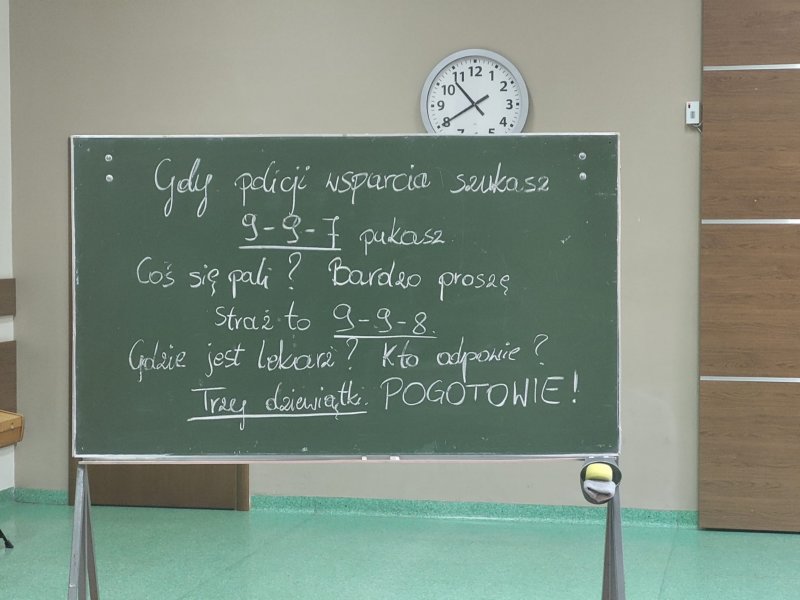 11 12 1
10 2
9 3
8 4
7 5
Gdy policji wsparcia szukasz
9-9-7 pukasz
Coś się pali? Bardzo proszę
Straż to 9-9-8.
Gdzie jest lekarz? Kto odpowie?
Trzy dziewiątki. POGOTOWIE!